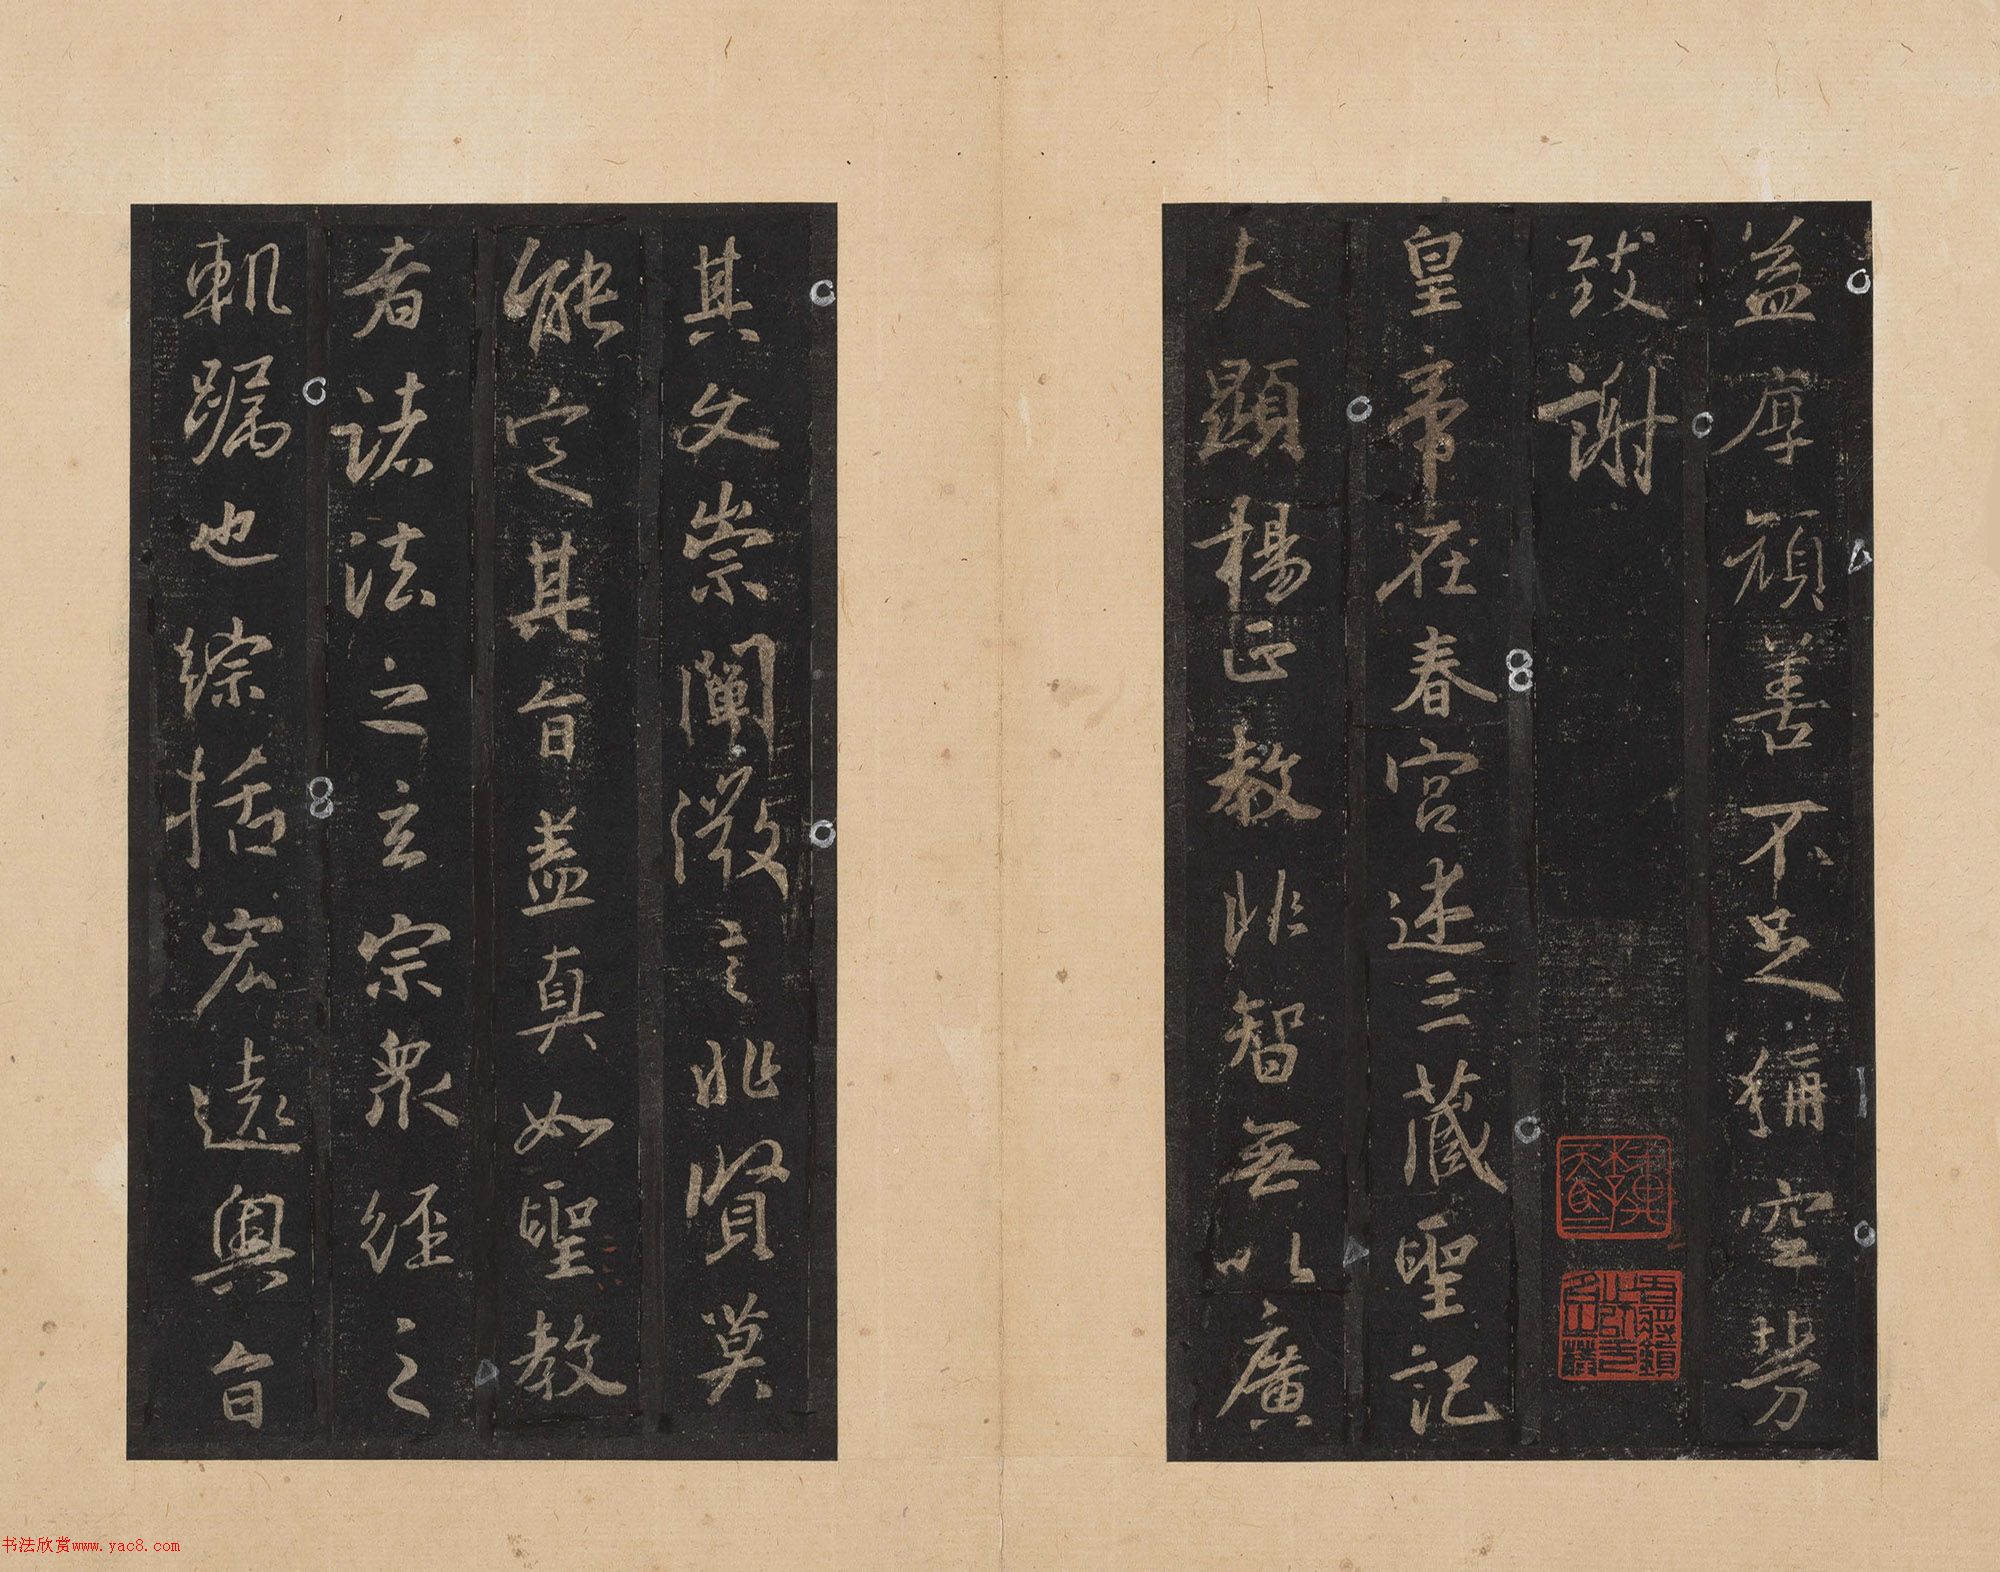 益厚顏善不足稱空勞
致謝
皇帝在春宮述三藏聖記
夫顯楊正教非智無以廣
其文崇闡微言非賢莫
能定其旨蓋真如聖教
者諸法之玄宗眾經之
軌躅也綜括宏遠奧旨
书法欣赏www.yac8.com